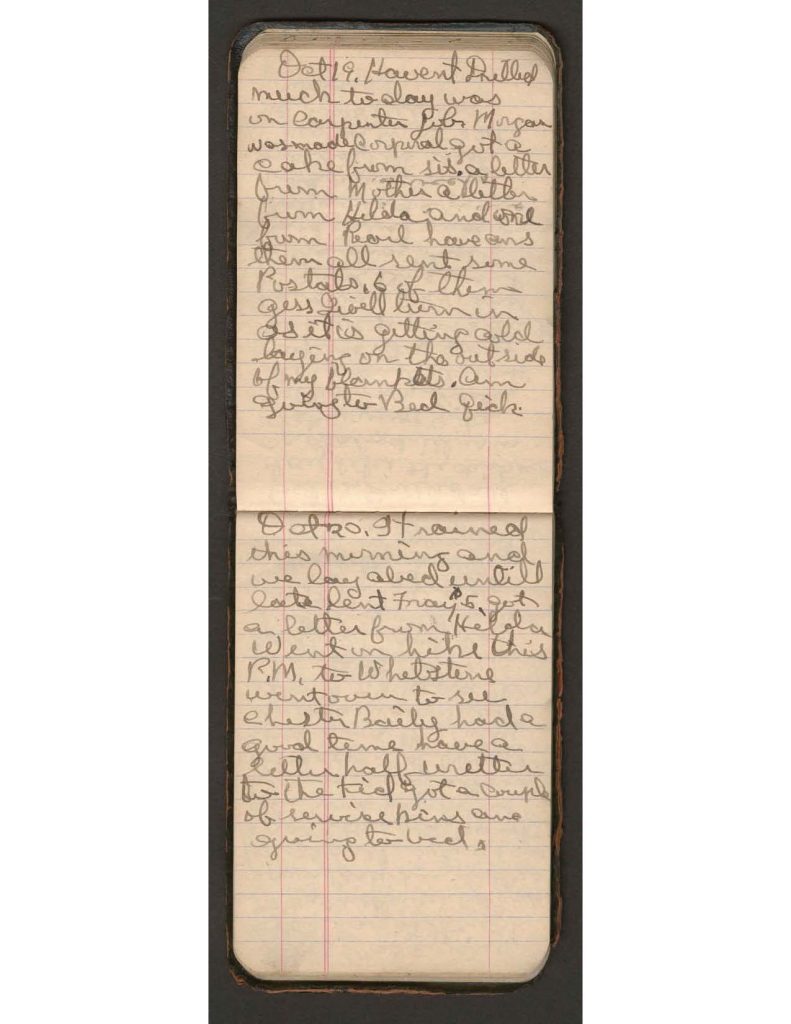 Oct 19. Havent Drilled
much to day was
on Carpenter Job. Morgan
was made Corpiral got a
cake from sis. a letter
frum Mother a letter
frum Helda and one
frum Pearl have ans
them all sent some
Postals. 6 of them
gess I will turn in
as it is getting cold
laying on the out side
of my blankets. am
going to Bed qick.
Oct 20. It rained
this morning and
we lay abed untill
late lent Fray $5. got
a letter from Helda
Went on hike this
P.M. to Whetstone
went over to see
Chester Baily had a
good teme have a
letter half wretten
to the Kid got a couple
of servise pins and
going to bed.